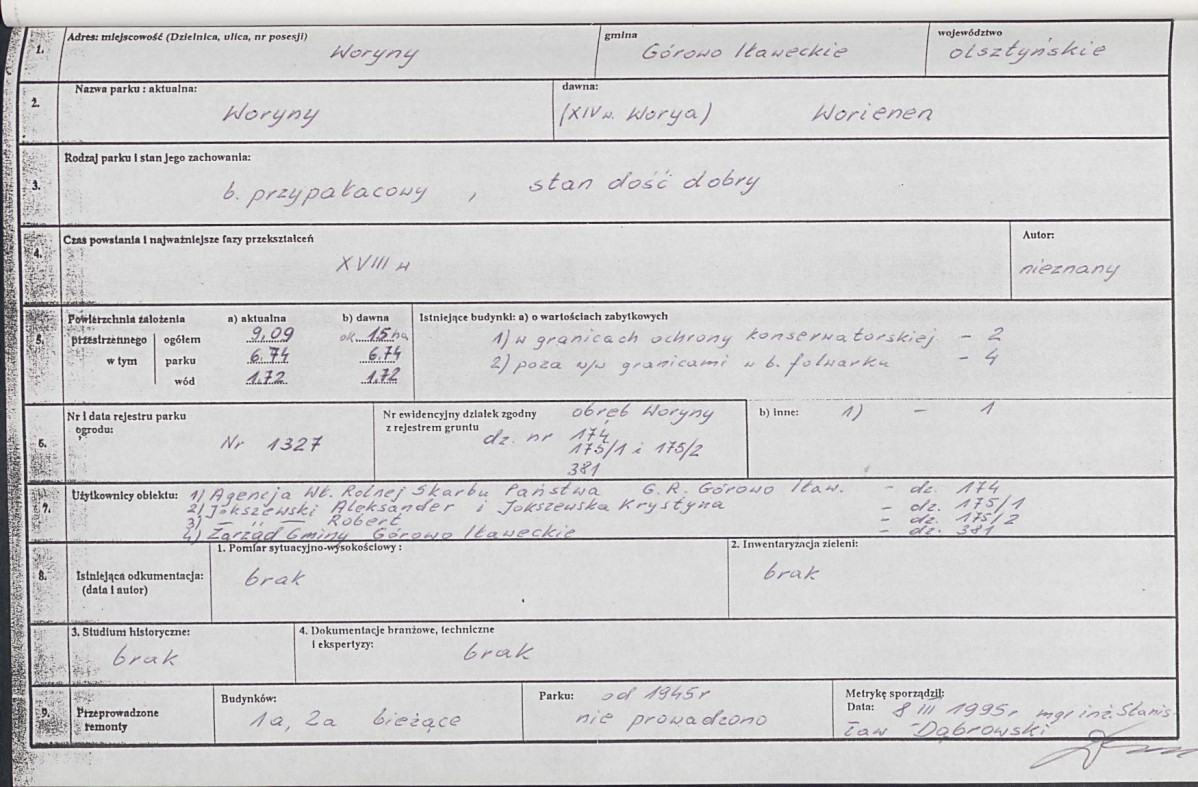 1. Adres: miejscowość (Dzielnica, ulica, nr posesji) Woryny
gmina Górowo Iławeckie
województwo olsztyńskie
2. Nazwa parku : aktualna: Woryny
dawna: (XIV w. Worya) Worienen
3. Rodzaj parku i stan jego zachowania:
b. przypałacowy , stan dość dobry
4. Czas powstania i najważniejsze fazy przekształceń
XVIII w
Autor:
nieznany
5. Powierzchnia założenia a) aktualna b) dawna
przestrzennego ogółem 9,09 ok. 15 ha
w tym parku 6.74 6.74
wód 1.72 1.72
Istniejące budynki: a) o wartościach zabytkowych
1) w granicach ochrony konserwatorskiej - 2
2) poza w/w granicami w b. folwarku - 4
6. Nr i data rejestru parku
ogrodu:
Nr 1327
Nr ewidencyjny działek zgodny obręb Woryny
z rejestrem gruntu dz. nr 174
175/1 i 175/2
381
b) inne: 1) - 1
7. Użytkownicy obiektu: 1) Agencja Wł. Rolnej Skarbu Państwa G.R. Górowo Iław. - dz. 174
2) Jokszewski Aleksander i Jokszewska Krystyna - dz. 175/1
3) — " — Robert - dz. 175/2
4) Zarząd Gminy Górowo Iławeckie - dz. 381
8. Istniejąca odkumentacja:
(data i autor)
1. Pomiar sytuacyjno-wysokościowy :
brak
2. Inwentaryzacja zieleni:
brak
3. Studium historyczne:
brak
4. Dokumentacje branżowe, techniczne
i ekspertyzy: brak
9. Przeprowadzone
remonty
Budynków:
1a, 2a bieżące
Parku: od 1945 r
nie prowadzono
Metrykę sporządził:
Data: 8 III 1995 r. mgr inż. Stanis-
ław Dąbrowski